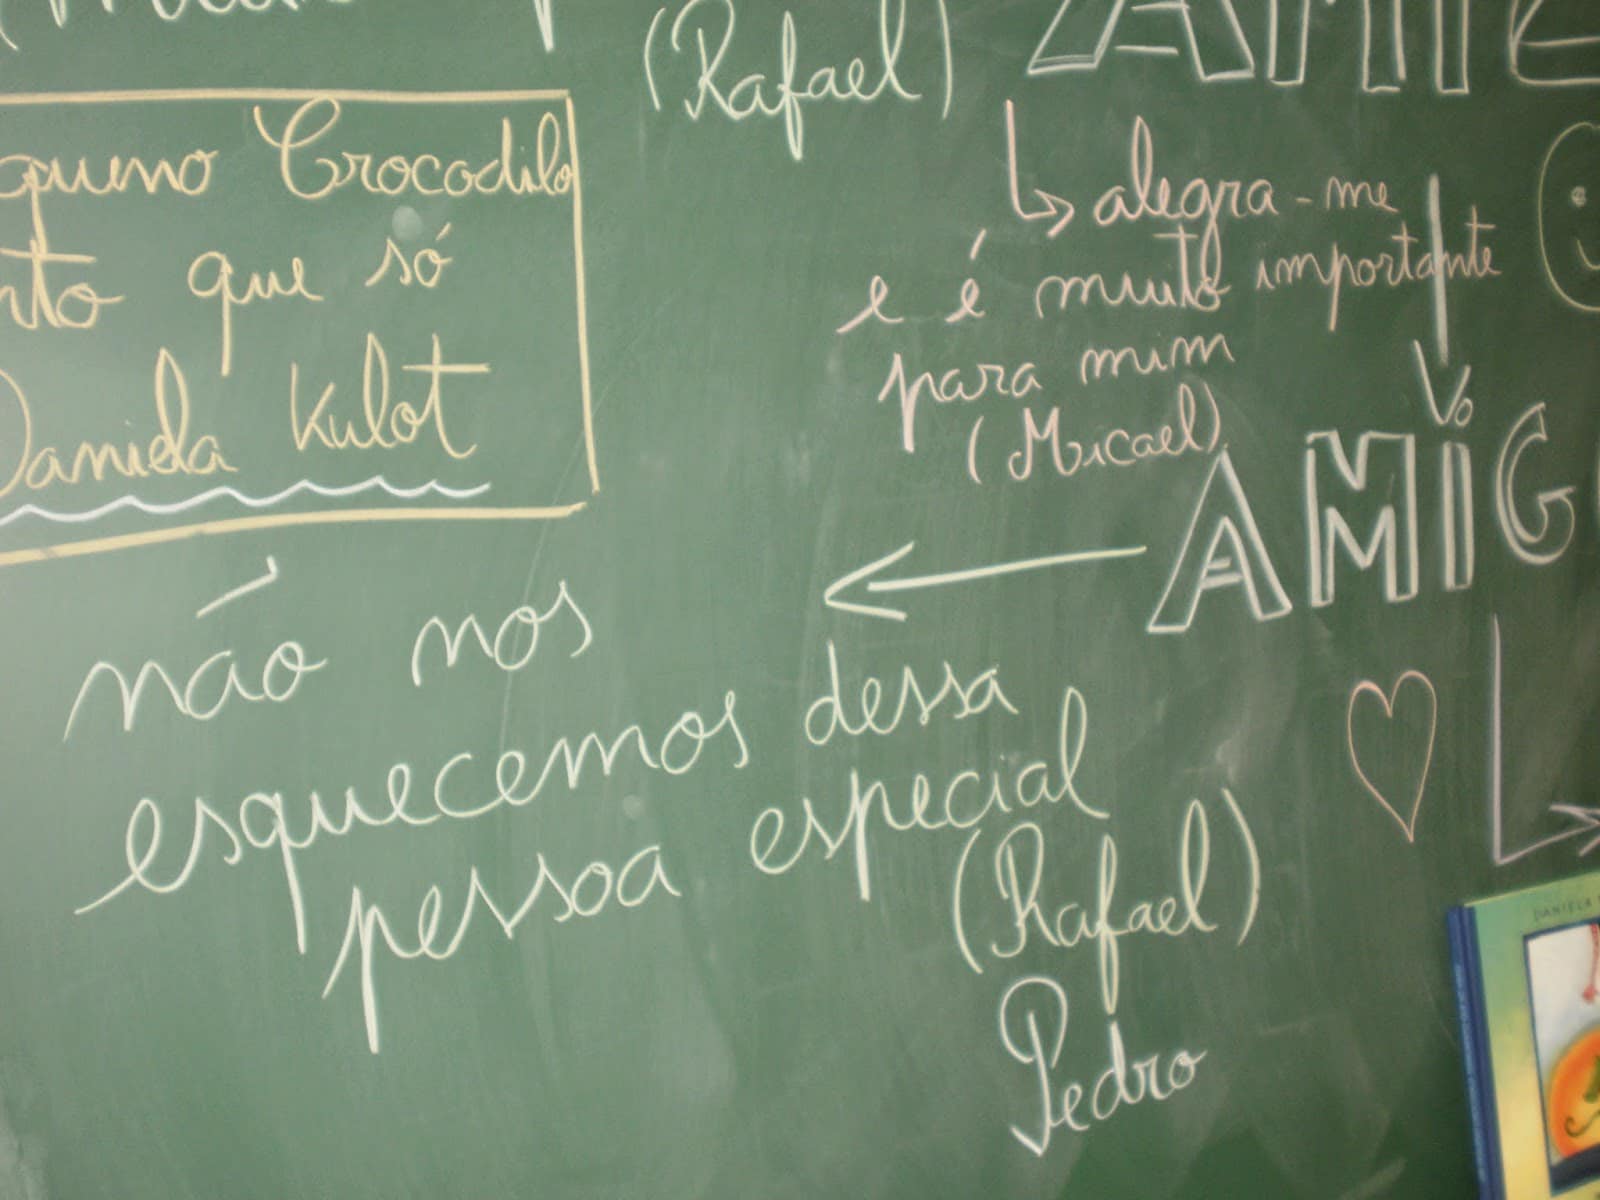 (Rafael)
Crocodilo
que só
Daniela Kulot
alegra-me
e é muito importante
para mim
(Micael)
não nos
esquecemos dessa
pessoa especial
(Rafael)
Pedro
DANIELA